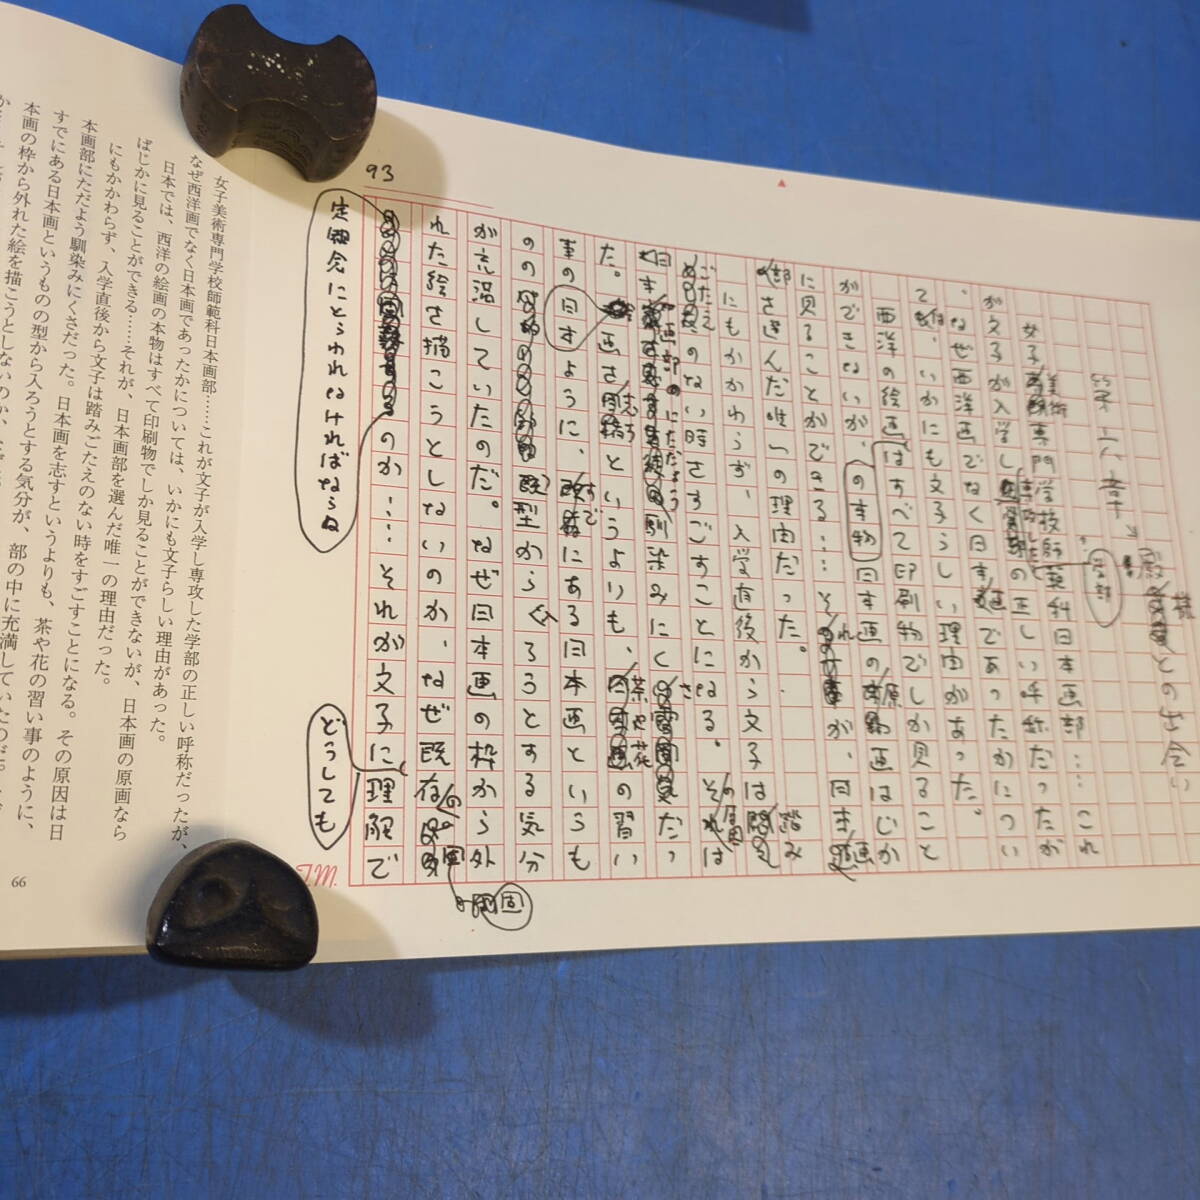 第六章
殿様との出会い
女子美術専門学校師範科日本画部……これ
が文子が入学し専攻した学部の正しい呼称だったが
、なぜ西洋画でなく日本画であったかについ
ては、いかにも文子らしい理由があった。
西洋の絵画はすべて印刷物でしか見ること
の本物
ができないが、日本画の原画はじか
に見ることができる……それが、日本画
部を選んだ唯一の理由だった。
にもかかわらず、入学直後から文子は踏み
ごたえのない時をすごすことになる。その原因は
日本画部にただよう馴染みにくさだっ
た。日本画を志すというよりも、茶や花の習い
事のように、すでにある日本画というも
のの型から入ろうとする気分
が充満していたのだ。なぜ日本画の枠から外
れた絵を描こうとしないのか、なぜ既存の
固
定観念にとらわれなければならぬ
のか……それが文子に理解で
どうしても
93
女子美術専門学校師範科日本画部……これが文子が入学し専攻した学部の正しい呼称だったが、
なぜ西洋画でなく日本画であったかについては、いかにも文子らしい理由があった。
日本では、西洋の絵画の本物はすべて印刷物でしか見ることができないが、日本画の原画なら
ばじかに見ることができる……それが、日本画部を選んだ唯一の理由だった。
にもかかわらず、入学直後から文子は踏みごたえのない時をすごすことになる。その原因は日
本画部にただよう馴染みにくさだった。日本画を志すというよりも、茶や花の習い事のように、
すでにある日本画というものの型から入ろうとする気分が、部の中に充満していたのだ。
本画の枠から外れた絵を描こうとしないのか、
66